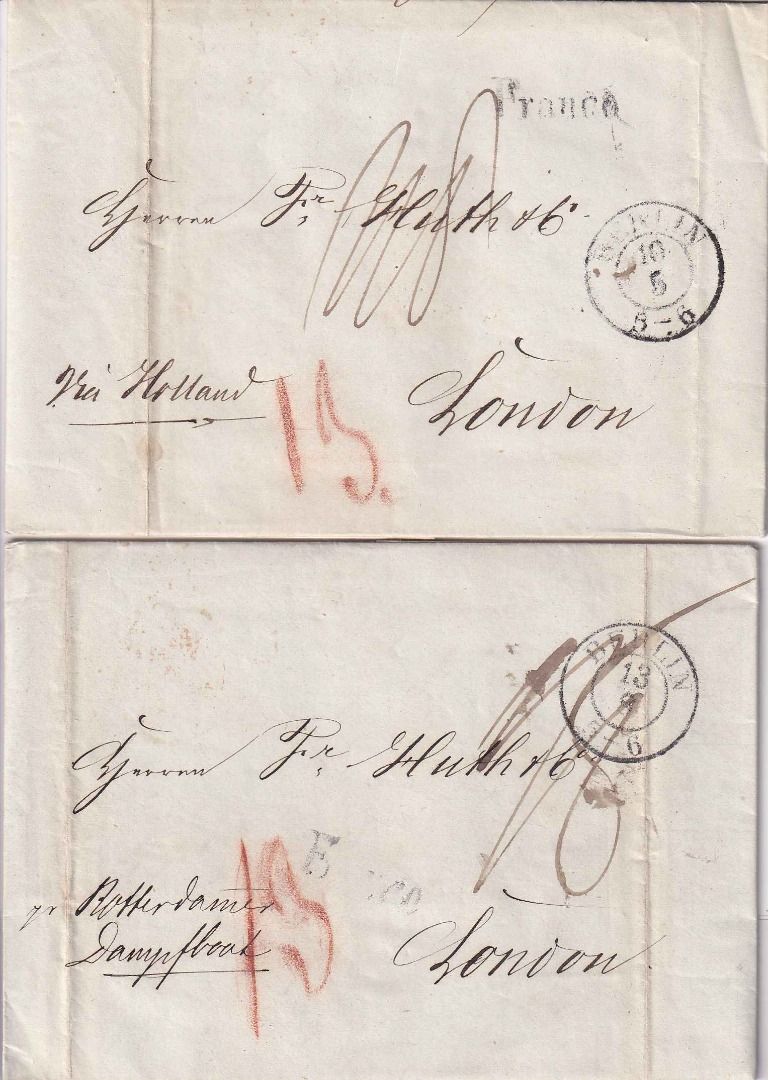 Franco
Herren Fr Huth & Co
BERLIN
10
5
3–6
Via Holland
13.
London
BERLIN
13
6
Herren Fr Huth & Co
13
pr Rotterdamer
Dampfboot
London